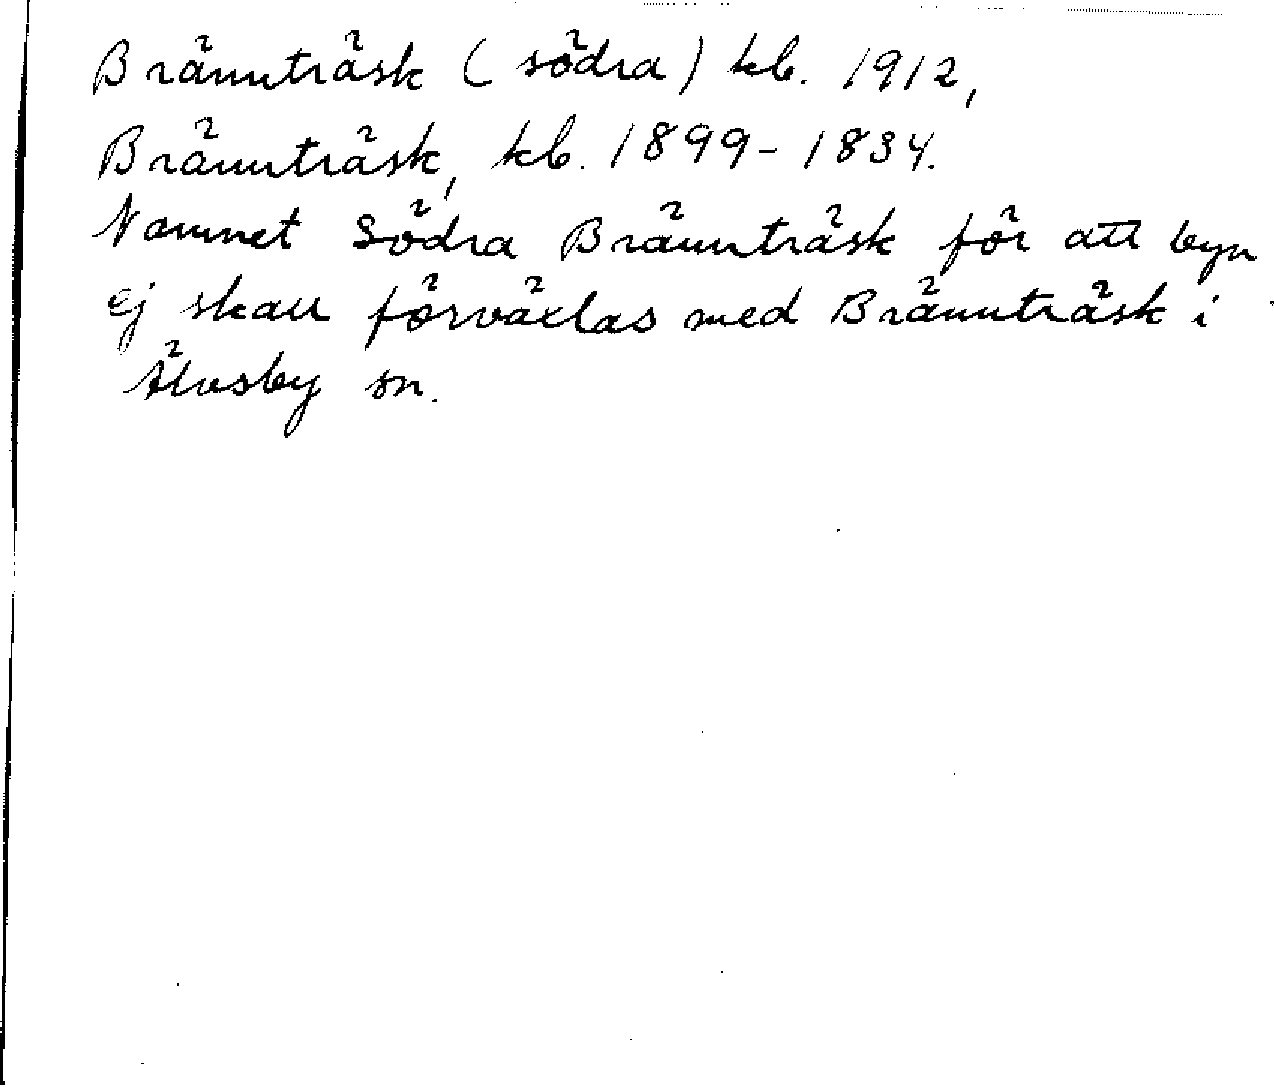 Brännträsk (södra) kb. 1912,
Brännträsk, kb. 1899-1834.
Namnet Södra Brännträsk för att byn
ej skall förväxlas med Brännträsk i
Älvsby sn.